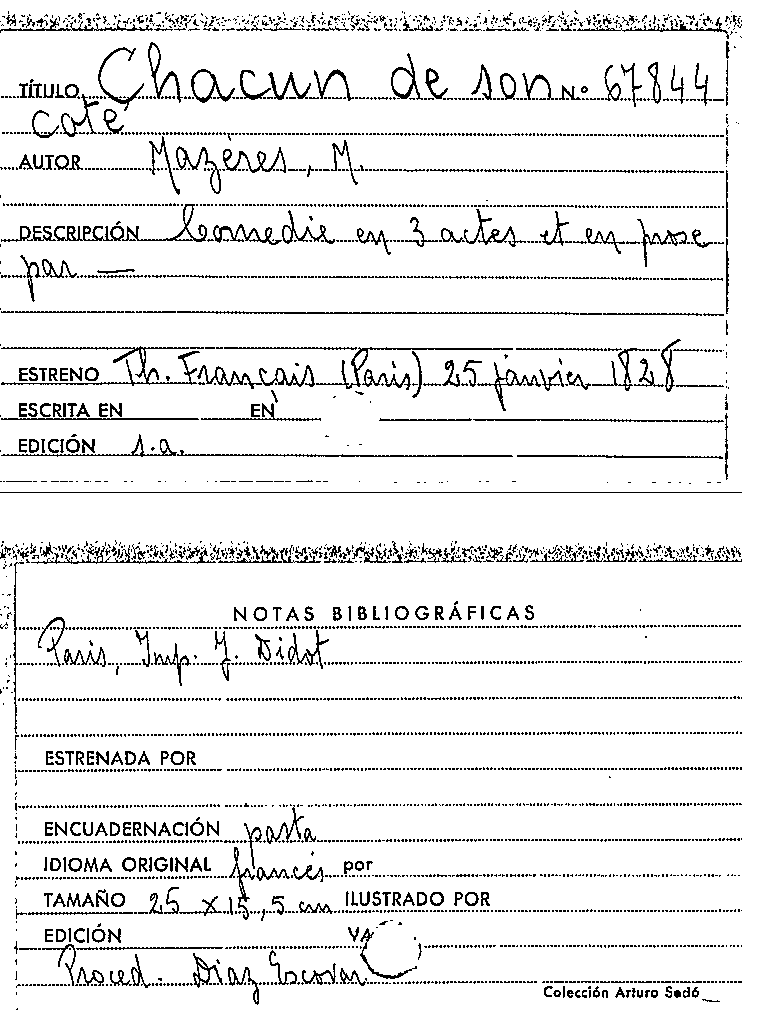 TÍTULO Chacun de son Nº 67844
coté
AUTOR Mazéres, M.
DESCRIPCIÓN Comedie en 3 actes et en prose
par —
ESTRENO Th. Français (Paris) 25 janvier 1828
ESCRITA EN EN
EDICIÓN s.a.
NOTAS BIBLIOGRÁFICAS
Paris, Imp. J. Didot
ESTRENADA POR
ENCUADERNACIÓN pasta
IDIOMA ORIGINAL francés por
TAMAÑO 25 x 15,5 cm ILUSTRADO POR
EDICIÓN
Proced. Diaz Escovar
Colección Arturo Sedó